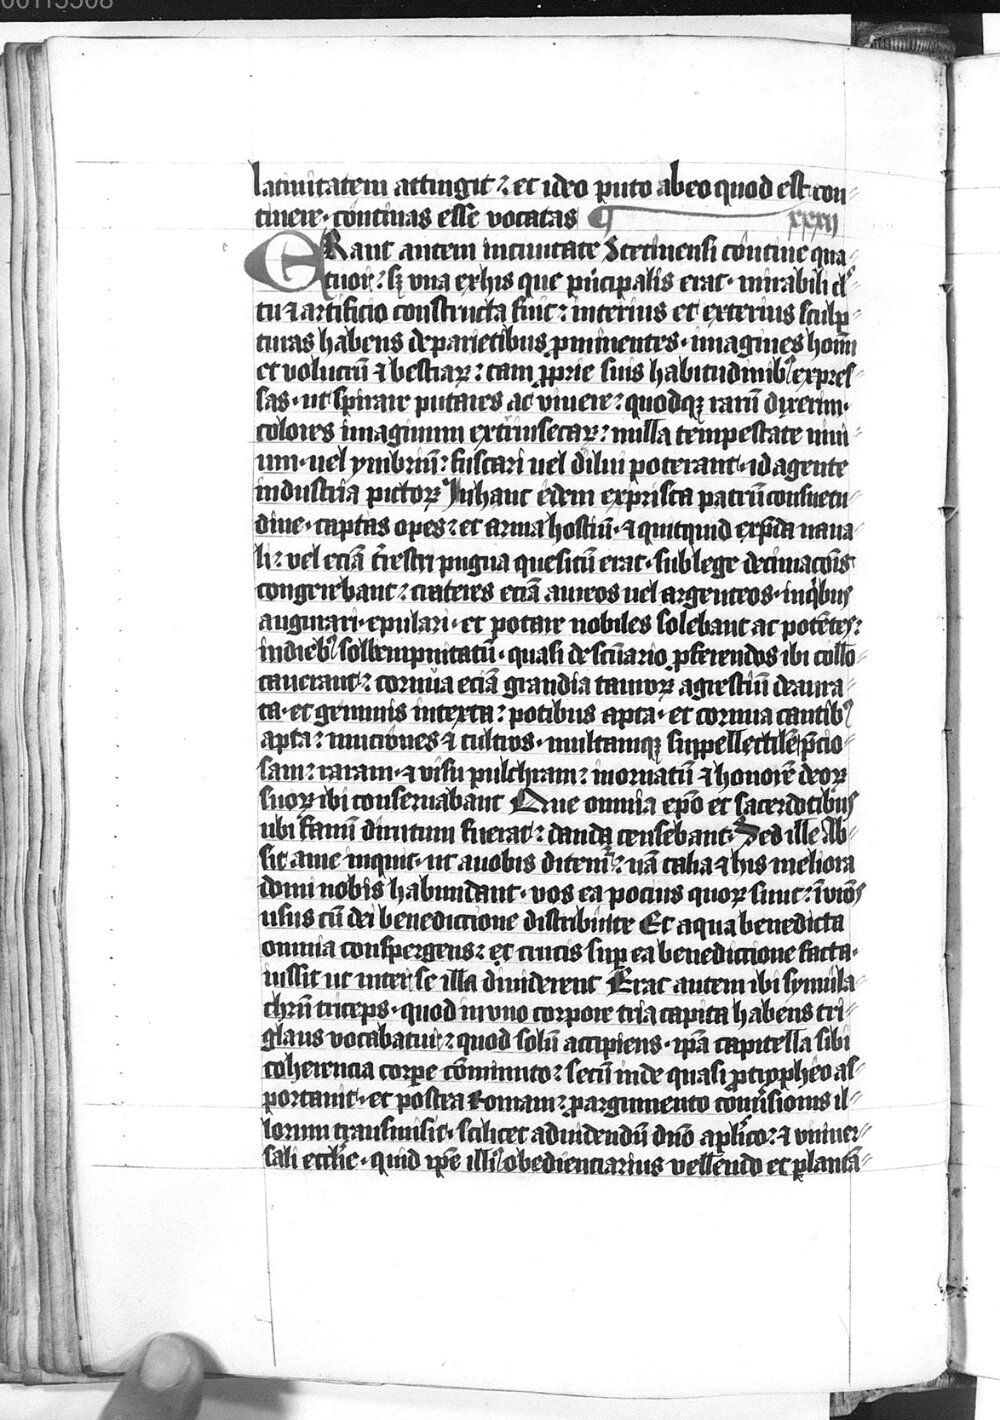 00115508
latinitatem attingit : et ideo puto ab eo quod est con-
tinere · continas esse vocatas xxxii
ERant autem in ciuitate Stetinensi contine qua-
tuor : sꝫ vna ex his que pͥncipalis erat · mirabili cl̕-
tu ⁊ artificio constructa fuit : interius et exterius sculp-
turas habens de parietibus ꝓminentes · imagines homi͞
et volucrū ⁊ bestiaꝝ : tam ꝓprie suis habitudinibꝰ expres-
sas · ut spirare putares ac viuere : quodqꝫ rarū dixerim ·
colores imaginum extrinsecaꝝ : nulla tempestate niui-
um · uel ymbriū : fuscari uel dilui poterant · id agente
industria pictoꝝ In hanc edem ex prisca patrū consuetu-
dine · captas opes : et arma hostiū · ⁊ quitquid ex p̄da naua-
li : vel eciā tr̄estri pugna quesitū erat · sub lege decimacōis
congerebant : crateres eciā aureos uel argenteos · in qͥbus
augurari · epulari · et potare nobiles solebant ac potētes :
in diebꝰ sollempnitatū · quasi de sc̄uario ꝓferendos ibi collo-
cauerant : cornua eciā grandia tauroꝝ agrestiū deaura-
ta · et gemmis intexta : potibus apta · et cornua cantibꝰ
apta : mucrones ⁊ cultros · multamqꝫ suppellectilē p̄cio-
sam : raram · ⁊ visu pulchram : in ornatū ⁊ honorē deoꝝ
suoꝝ ibi conseruabant Que omnia ep̄o et sacerdotibus
ubi fanū dirutum fuerat : danda censebant · Sed ille Ab-
sit a me inquit · ut a uobis ditemᷣ : nā talia ⁊ his meliora
domi nobis habundant · vos ea pocius quoꝝ sunt : ī vr̄os
usus cū dei benedictione distribuite Et aqua benedicta
omnia conspergens : et crucis suꝑ ea benedictione facta ·
iussit ut inter se illa diuiderent Erat autem ibi symula-
chrū triceps · quod in vno corpore tria capita habens tri-
glaus vocabatur : quod solū accipiens · ip̄a capitella sibi
coherencia corpe cōminuto : secū inde quasi ꝓ tropheo as-
portauit · et postea Romam : ꝓ argumento conuͥsionis il-
lorum transmisit · scilicet ad uidendū dn̄o aplͥco : ⁊ vniuer-
sali eccl̄ie · quid ip̄e illiꝰ obedienciarius vellendo et plantā-